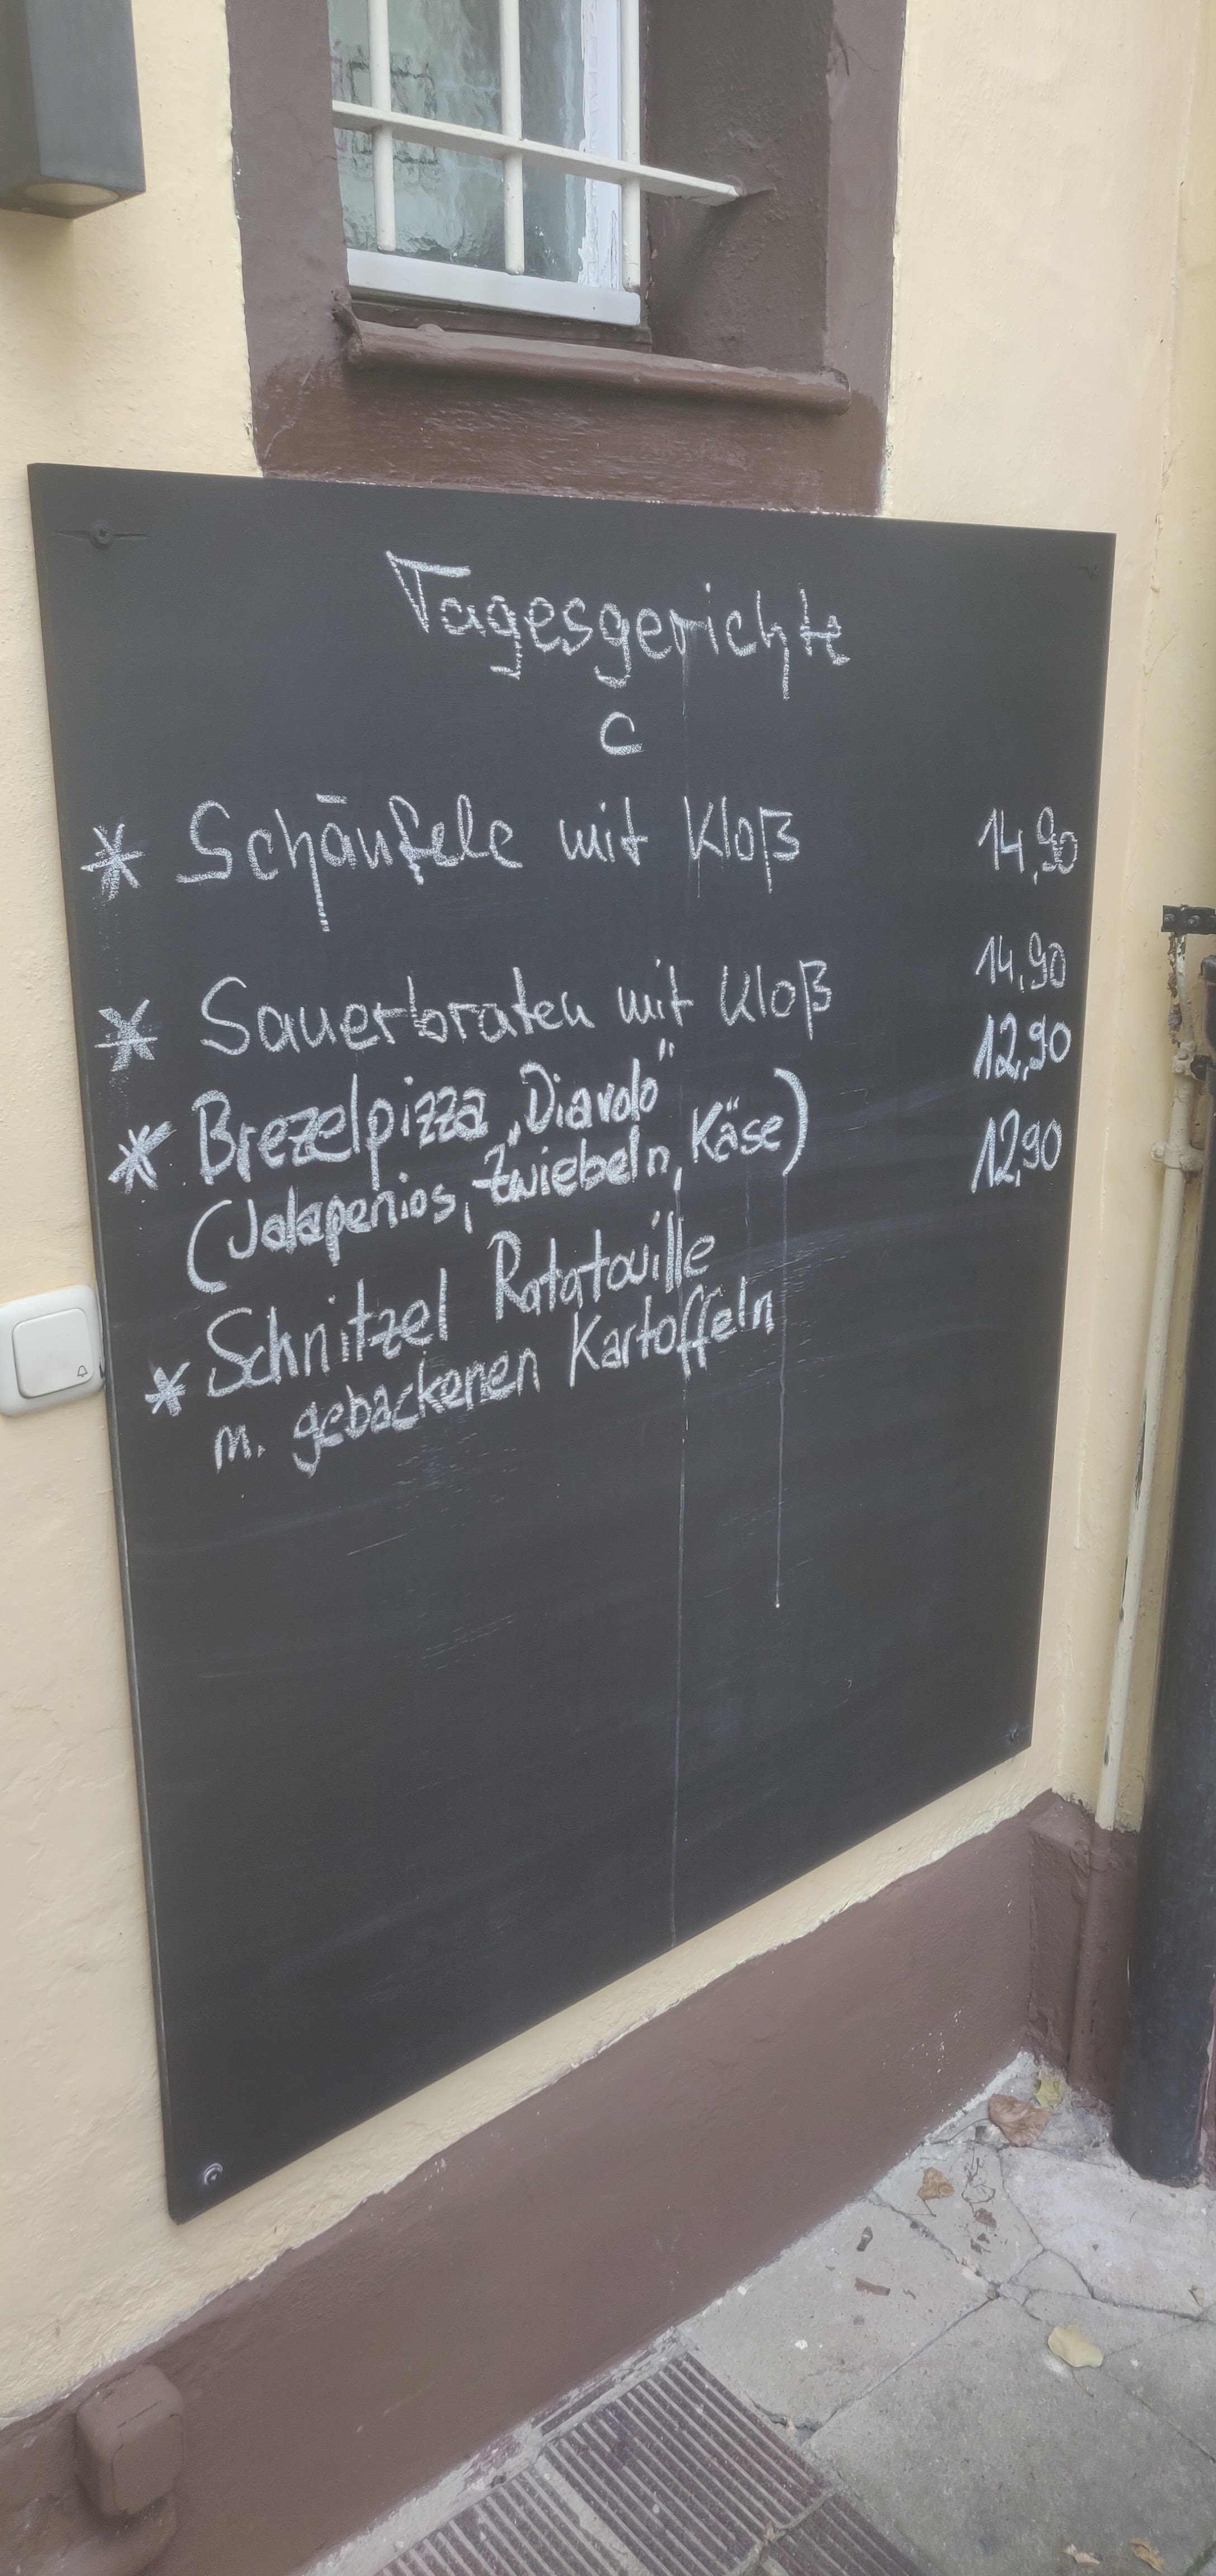 Tagesgerichte
C
* Schäufele mit Kloß 14,90
* Sauerbraten mit Kloß 14,90
* Brezelpizza „Diavolo“ 12,90
(Jalapenios, Zwiebeln, Käse)
* Schnitzel Ratatouille 12,90
m. gebackenen Kartoffeln